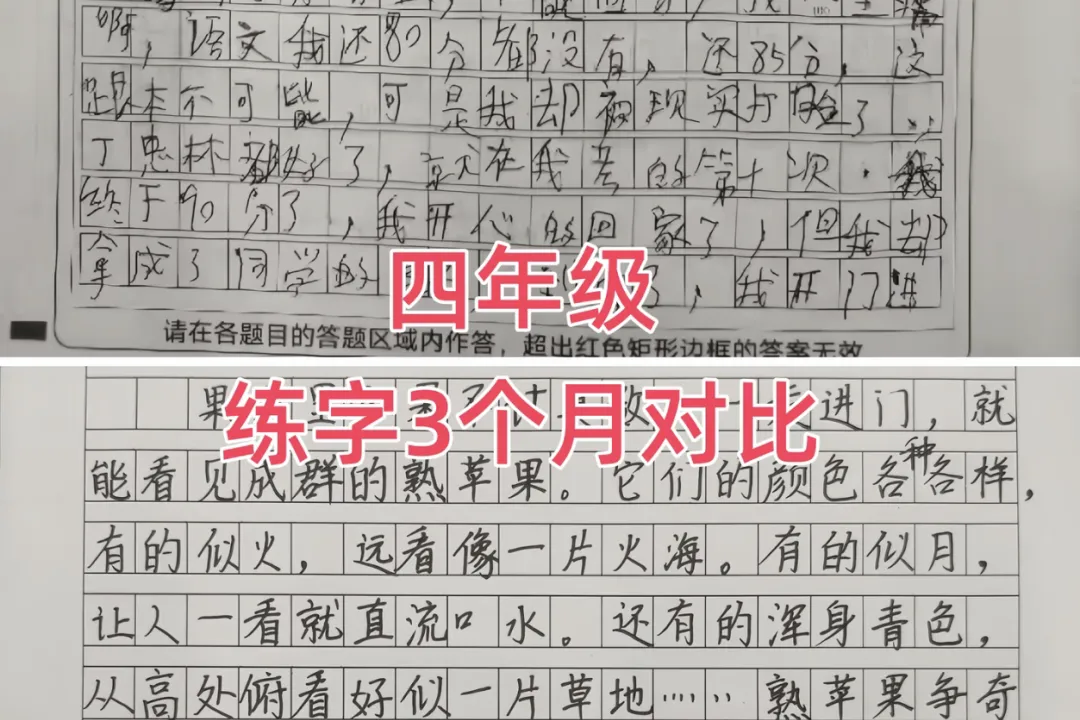 啊，语文我还80分都没有，还85分，这
跟本不可能，可是我去却被现实打脸了
丁忠林都好了，就在我考的第十次．我
终于90分了，我开心的回家了，但我却
拿成了同学的 了，我开门进
四年级
请在各题目的答题区域内作答，超出红色矩形边框的答案无效
练字3个月对比
果 里 进门，就
能看见成群的熟苹果。它们的颜色各种各样，
有的似火，远看像一片火海。有的似月，
让人一看就直流口水。还有的浑身青色，
从高处俯看好似一片草地……熟苹果争奇